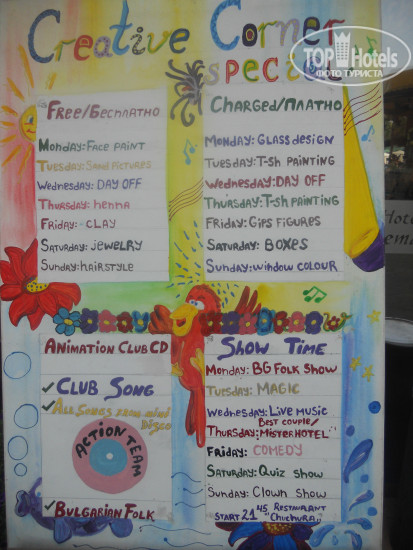 Creative Corner
special
TOP Hotels
ФОТО ТУРИСТА
Free/Бесплатно
Monday: Face paint
Tuesday: Sand pictures
Wednesday: DAY OFF
Thursday: henna
Friday: CLAY
Saturday: jewelry
Sunday: hairstyle
Charged/Платно
Monday: Glass design
Tuesday: T-sh painting
Wednesday: DAY OFF
Thursday: T-sh painting
Friday: Gips figures
Saturday: Boxes
Sunday: window colour
Animation Club CD
✓ Club Song
✓ All songs from mini
Disco
ACTION TEAM
✓ Bulgarian Folk
Show Time
Monday: BG Folk show
Tuesday: Magic
Wednesday: Live music
Best couple/
Thursday: Mister Hotel
Friday: Comedy
Saturday: Quiz show
Sunday: Clown show
START 21 45 RESTAURANT
"Chuchura"